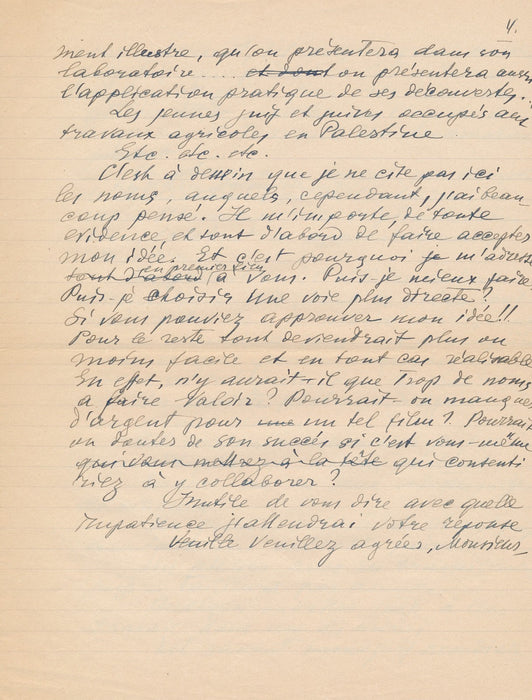 4.
ment illustre, qu'on présentera dans son
laboratoire.... et dont on présentera aussi
l'application pratique de ses découvertes..
Les jeunes juifs et juives occupés aux
travaux agricoles en Palestine
Etc. etc. etc.
C'est à dessein que je ne cite pas ici
les noms, auxquels, cependant, j'ai beau-
coup pensé. Il m'importe de toute
evidence et tout d'abord de faire accepter
mon idée. Et c'est pourquoi je m'adresse
en premier lieu
tout d'abord à vous. Puis-je mieux faire
Puis-je choisir une voie plus directe?
Si vous pouviez approuver mon idée!!
Pour le reste tout deviendrait plus ou
moins facile et en tout cas réalisable
En effet, n'y aurait-il que trop de noms
a faire valoir? Pourrait-on manquer
d'argent pour une un tel film? Pourrait
on douter de son succès si c'est vous-même
qui vous mettrez à la tête qui consenti
riez à y collaborer?
Inutile de vous dire avec quelle
impatience j'attendrai votre réponse
Veuille Veuillez agréer, Monsieur